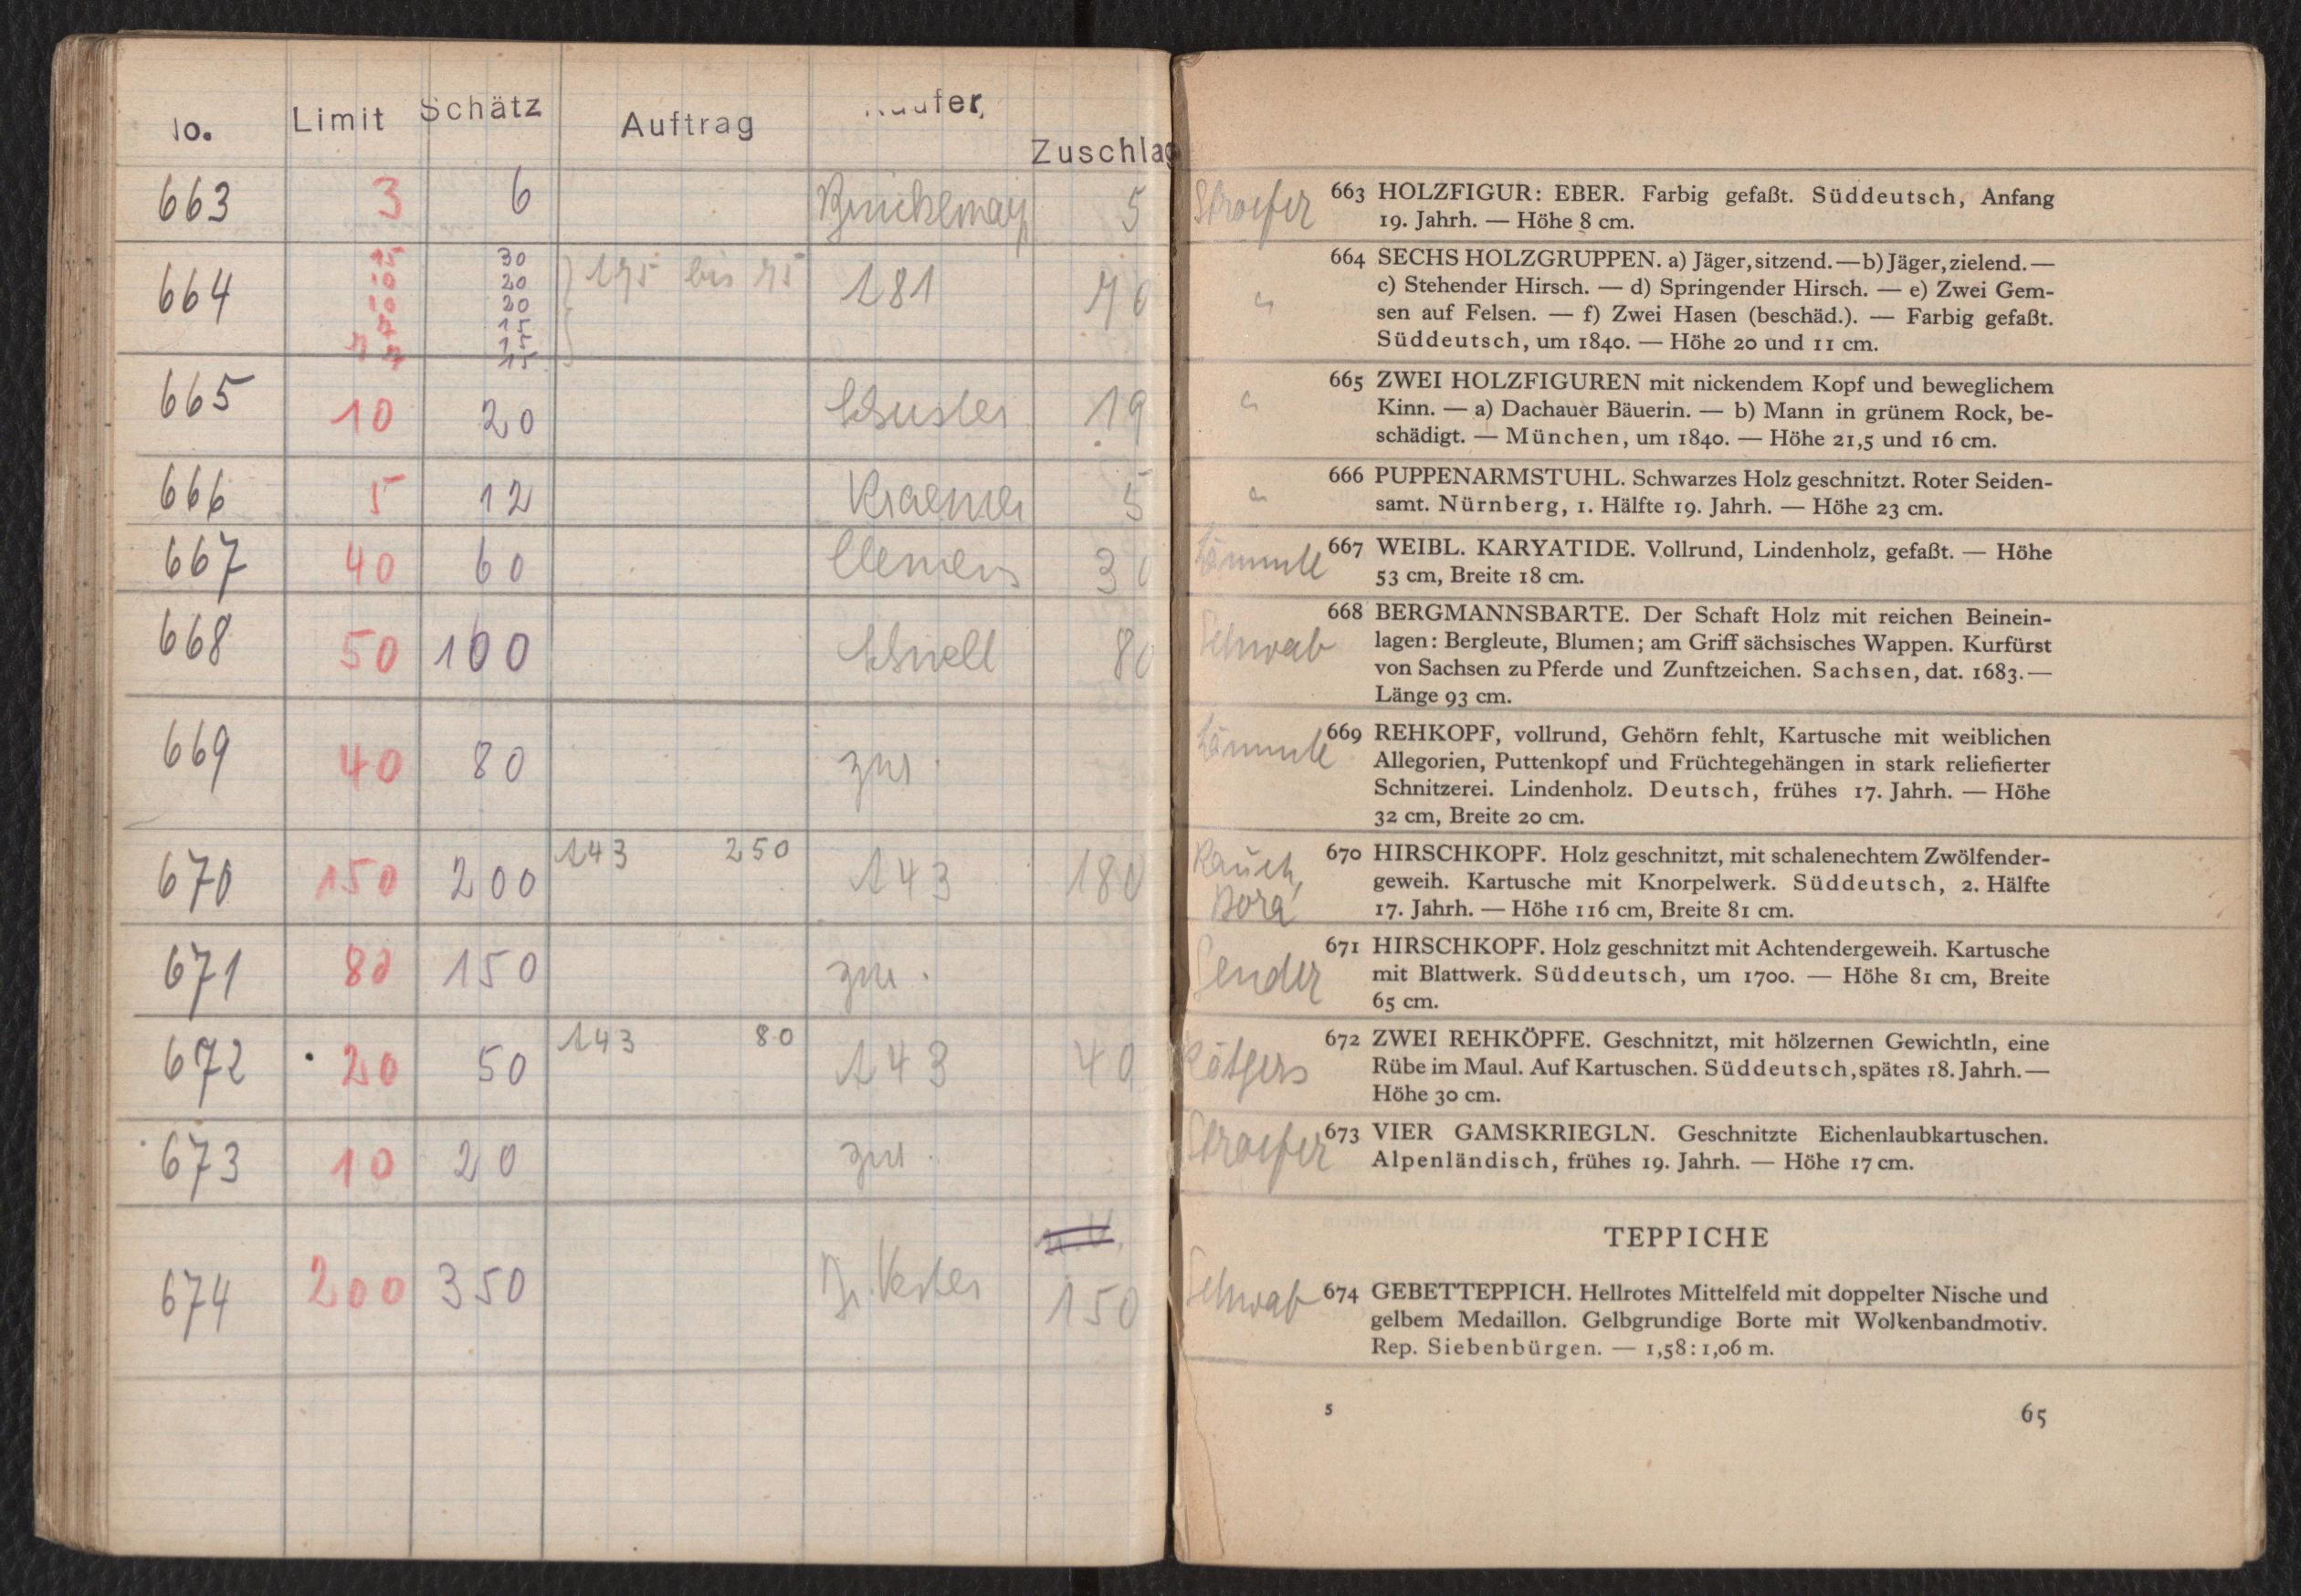 Limit Schätz Auftrag Zuschlag
663 3 6 5
664 30 175 bis 75 181 70
10 20
10 20
7 15
7 15
7 15
665 10 20 Schuster 19
666 5 12 Kraemer 5
667 40 60 Clemens 30
668 50 100 Schnell 80
669 40 80 zur.
670 150 200 143 250 143 180
671 80 150 zur.
672 20 50 143 80 143 40
673 10 20 zur.
674 200 350 150
Stroefer 663 HOLZFIGUR: EBER. Farbig gefaßt. Süddeutsch, Anfang
19. Jahrh. — Höhe 8 cm.
664 SECHS HOLZGRUPPEN. a) Jäger, sitzend. — b) Jäger, zielend. —
c) Stehender Hirsch. — d) Springender Hirsch. — e) Zwei Gem-
sen auf Felsen. — f) Zwei Hasen (beschäd.). — Farbig gefaßt.
Süddeutsch, um 1840. — Höhe 20 und 11 cm.
665 ZWEI HOLZFIGUREN mit nickendem Kopf und beweglichem
Kinn. — a) Dachauer Bäuerin. — b) Mann in grünem Rock, be-
schädigt. — München, um 1840. — Höhe 21,5 und 16 cm.
666 PUPPENARMSTUHL. Schwarzes Holz geschnitzt. Roter Seiden-
samt. Nürnberg, 1. Hälfte 19. Jahrh. — Höhe 23 cm.
Lämmle 667 WEIBL. KARYATIDE. Vollrund, Lindenholz, gefaßt. — Höhe
53 cm, Breite 18 cm.
668 BERGMANNSBARTE. Der Schaft Holz mit reichen Beinein-
Schwab lagen: Bergleute, Blumen; am Griff sächsisches Wappen. Kurfürst
von Sachsen zu Pferde und Zunftzeichen. Sachsen, dat. 1683. —
Länge 93 cm.
Lämmle 669 REHKOPF, vollrund, Gehörn fehlt, Kartusche mit weiblichen
Allegorien, Puttenkopf und Früchtegehängen in stark reliefierter
Schnitzerei. Lindenholz. Deutsch, frühes 17. Jahrh. — Höhe
32 cm, Breite 20 cm.
Rauch, 670 HIRSCHKOPF. Holz geschnitzt, mit schalenechtem Zwölfender-
geweih. Kartusche mit Knorpelwerk. Süddeutsch, 2. Hälfte
Dora 17. Jahrh. — Höhe 116 cm, Breite 81 cm.
671 HIRSCHKOPF. Holz geschnitzt mit Achtendergeweih. Kartusche
Sender mit Blattwerk. Süddeutsch, um 1700. — Höhe 81 cm, Breite
65 cm.
672 ZWEI REHKÖPFE. Geschnitzt, mit hölzernen Gewichtln, eine
Rötgers Rübe im Maul. Auf Kartuschen. Süddeutsch, spätes 18. Jahrh. —
Höhe 30 cm.
Stroefer 673 VIER GAMSKRIEGLN. Geschnitzte Eichenlaubkartuschen.
Alpenländisch, frühes 19. Jahrh. — Höhe 17 cm.
TEPPICHE
Schwab 674 GEBETTEPPICH. Hellrotes Mittelfeld mit doppelter Nische und
gelbem Medaillon. Gelbgrundige Borte mit Wolkenbandmotiv.
Rep. Siebenbürgen. — 1,58:1,06 m.
5 65